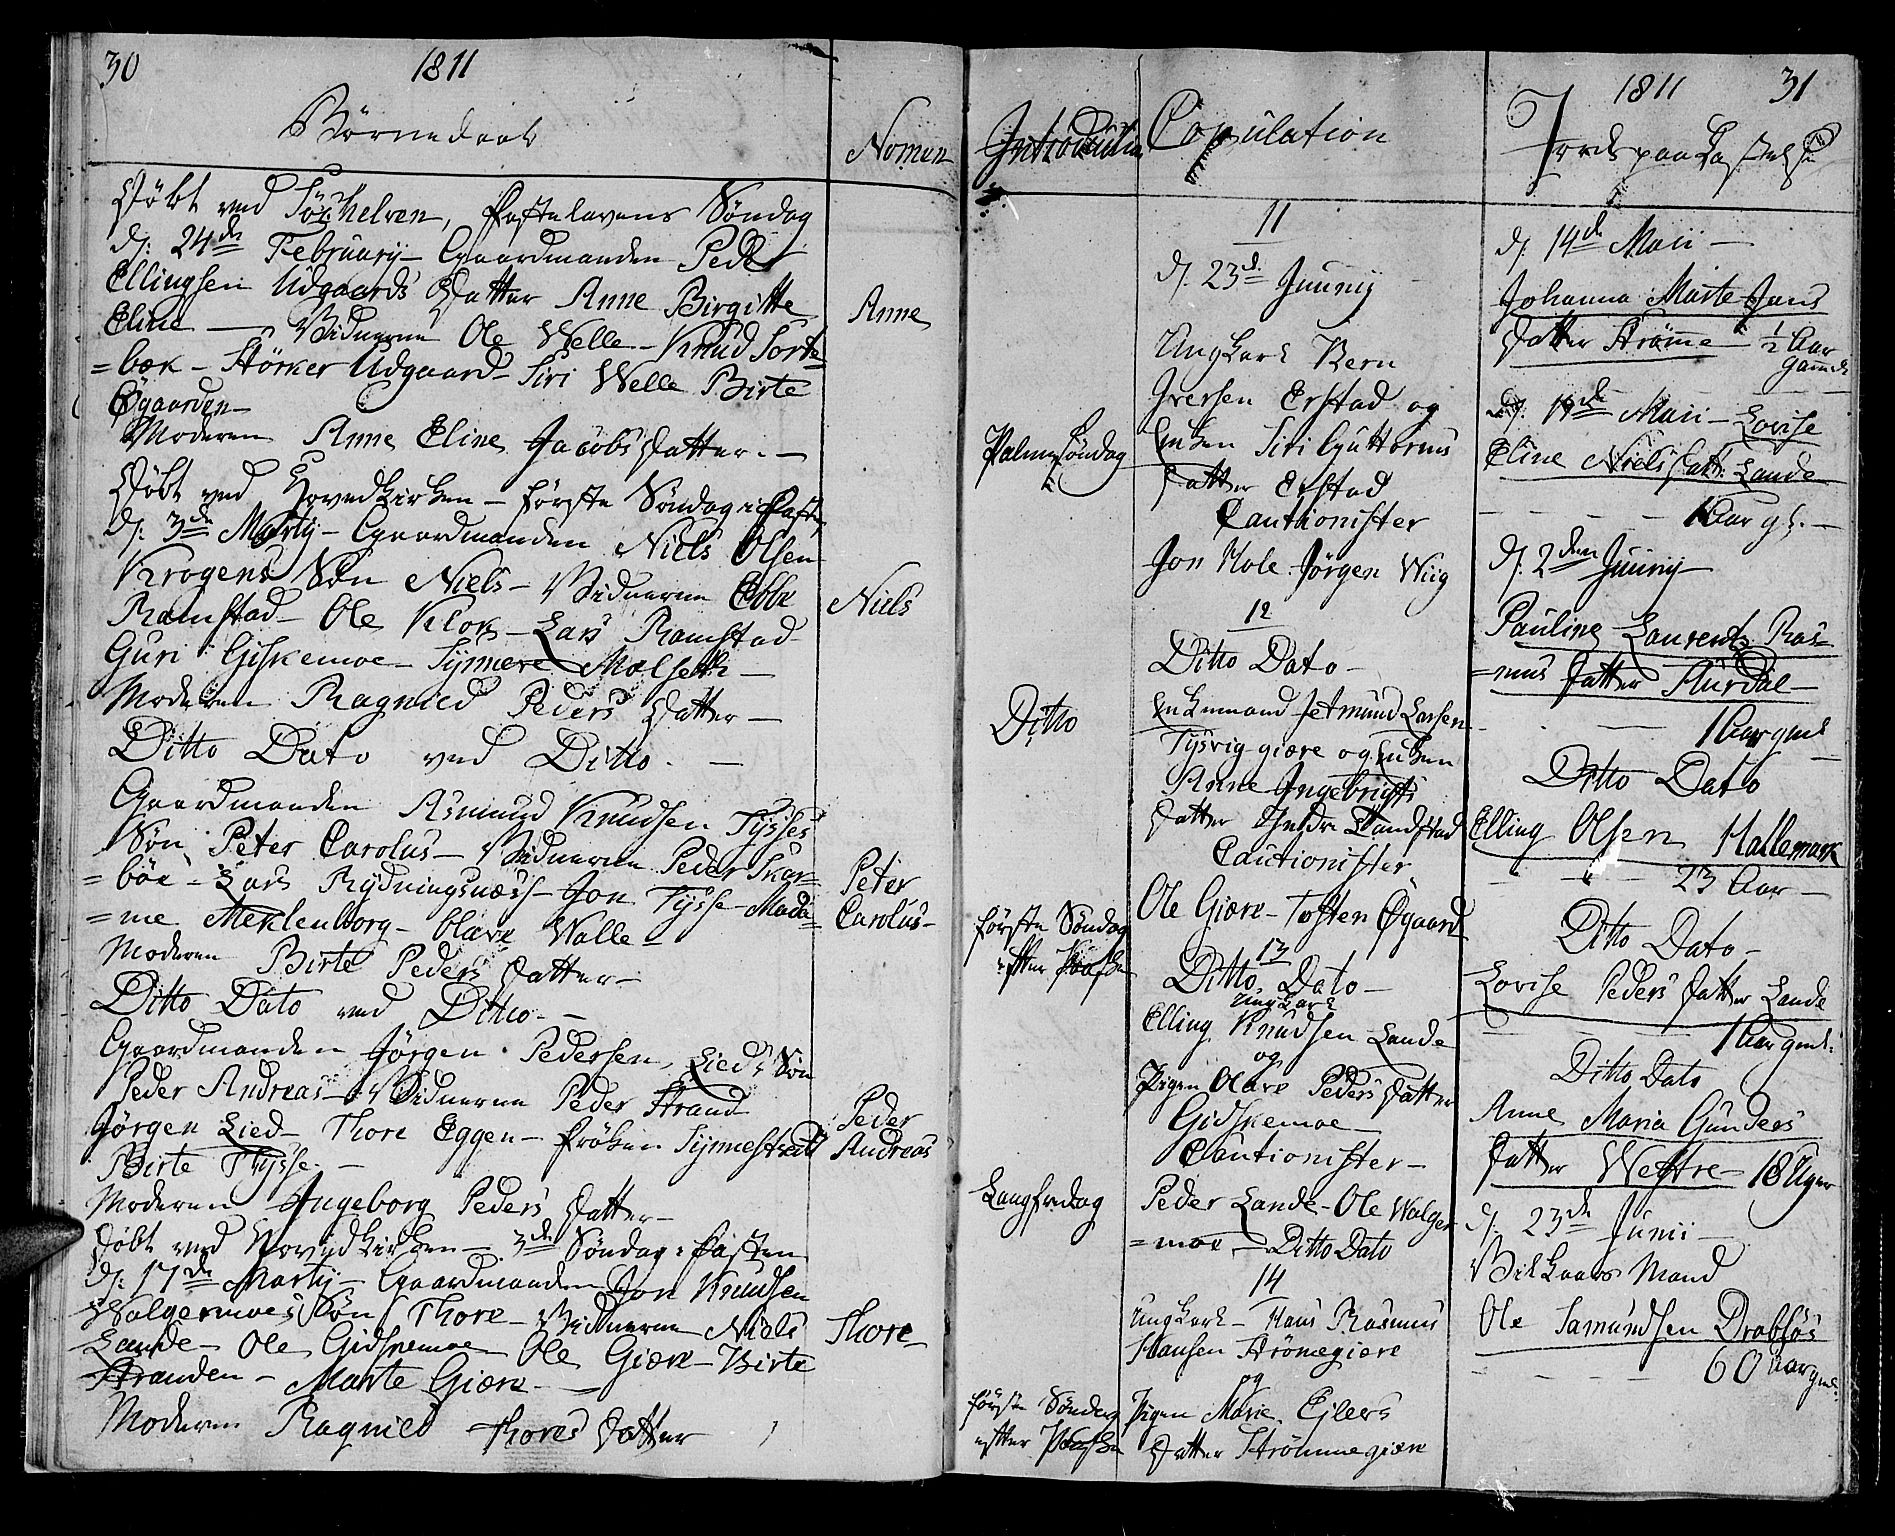 30
1811
Børnedaab
Nomen
Døbt ved Søcknelven, Fastelavens Søndag
d: 24de February - Gaardmanden Peder
Ellingsen Udgaards Datter Anne Birgitte
Eline — Vidnerne Ole Welle - Knud Sorte
=bæk - Störker Udgaard - Siri Welle Birte
Øgaarden -
Moderen Anne Eline Jacobs Datter. -
Anne
Døbt ved Hovedkirken - første Søndag i Faste
d: 3de Marty - Gaardmanden Niels Olsen
Krogens Søn Niels - Vidnerne Ebbe
Ramstad - Ole Klok - Lars Ramstad
Guri Giskemoe - Synnere Molseth -
Moderen Ragnild Peders Datter -
Niels
Ditto Dato ved Ditto. -
Gaardmanden Asmund Knudsen Tysses
Søn Peter Carolus - Vidnerne Peder Skar=
=böe - Lars Rydningsnæss - Jon Tysse - Mada=
=me Meklenborg - Olave Walle -
Moderen Birte Peders Datter -
Peter
Carolus -
Ditto Dato ved Ditto -
Gaardmanden Jørgen Pedersen Lieds Søn
Peder Andreas - Vidnerne Peder Strand
Jørgen Lied - Thore Eggen - Frøken Synnestvedt
Birte Tysse. -
Moderen Ingeborg Peders Datter -
Peder
Andreas
Døbt ved Hovedkirken - 3de Søndag i Fasten
d: 17de Marty - Gaardmanden Jon Knudsen
Walgermoes Søn Thore - Vidnerne Niels
Lande - Ole Gidskemoe Ole Giære - Birte
Stranden - Marte Giære -
Moderen Ragnild Thores Datter
Thore -
Introductio
Palmesøndag
Ditto
første Søndag
efter Paaske
Langfredag
første Søndag
efter Paaske
Copulation
11
d: 23d Juuny
Ungkarl Bern
Iversen Erstad og
Enken Siri Guttorms
Datter Erstad
Cautionister
Jon Hole Jørgen Wiig
12
Ditto Dato -
Enkemand Jetmund Larsen
Tysvig giære og Enken
Anne Ingebrigts
Datter Sandstad
Cautionister
Ole Giære - Tosten Øgaard
13
Ditto Dato -
Ungkarl
Elling Knudsen Lande
og
Pigen Olave Peders Datter
Gidskemoe
Cautionister -
Peder Lande - Ole Walger
=moe - Ditto Dato
14
Ungkarl - Hans Rasmus
Hansen Strömegiære
og
Pigen Marie Ejlers
Datter Strömmegiære
1811
31
Jordspaakastelse
d: 14de Maii -
Johanna Marte Jons
Datter Strömme 1/2 Aar
gaml
d: 19de Maii - Lovise
Eline Niels Datt: Lande
1 Aar gl. -
d: 2den Juuny -
Pauline Laurentz Ras=
=mus Datter Aurdal -
1 Aar gml
Ditto Dato
Elling Olsen Hallemark
23 Aar -
Ditto Dato -
Lovise Peders Datter Lande
1 Aar gml:
Ditto Dato
Anne Maria Gunders
Datter Westre - 18 Uger
d: 23de Junii -
Vilkaars Mand
Ole Samundsen Drabløs
60 Aar gml: